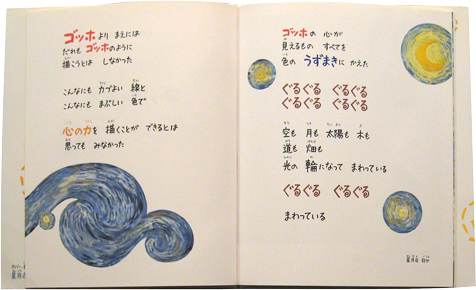 ゴッホより まえには
だれも ゴッホのように
描こうとは しなかった
こんなにも 力づよい 線と
こんなにも まぶしい 色で
心の力を 描くことが できるとは
思っても みなかった
ゴッホの 心が
見えるもの すべてを
色の うずまきに かえた
ぐるぐる ぐるぐる
ぐるぐる ぐるぐる
空も 月も 太陽も 木も
道も 畑も
光の 輪になって まわっている
ぐるぐる ぐるぐる
まわっている